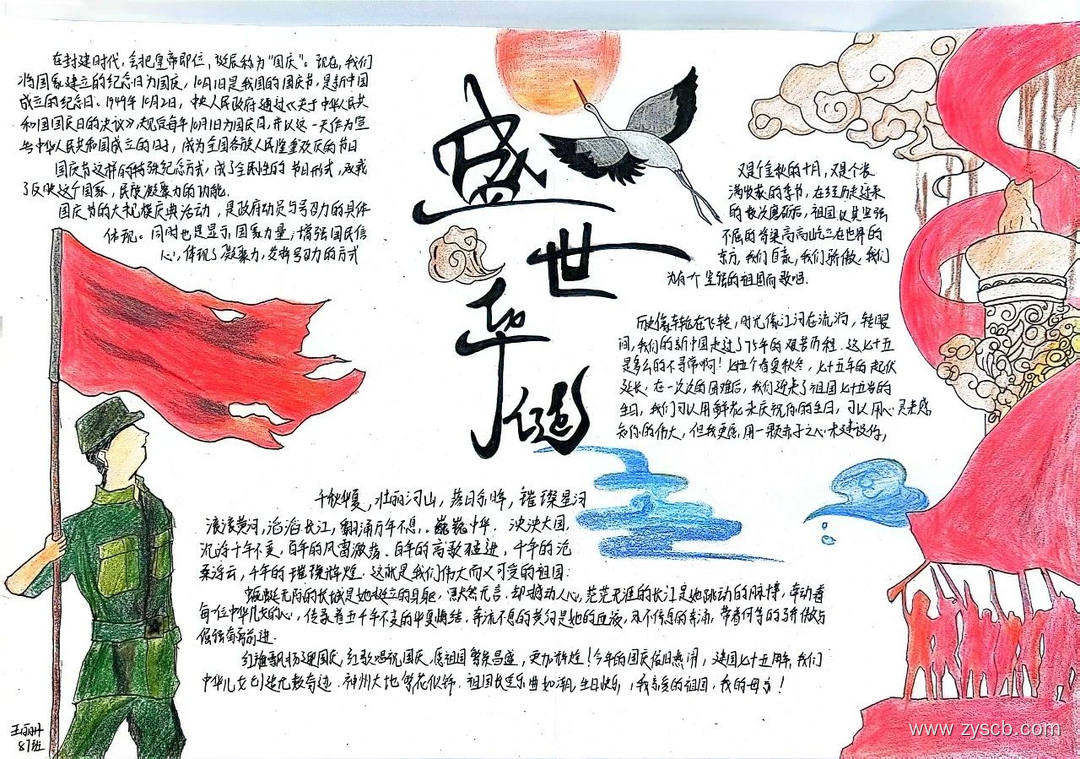 盛世华诞
在封建时代,会把皇帝即位、诞辰称为"国庆"。现在,我们
将国家建立的纪念日为国庆,10月1日是我国的国庆节,是新中国
成立的纪念日。1949年10月2日,中央人民政府通过《关于中华人民共
和国国庆日的决议》,规定每年10月1日为国庆日,并以这一天作为宣
告中华人民共和国成立的日子,成为全国各族人民隆重欢庆的节日
国庆节这样的特殊纪念方式,成了全民性的节日形式,承载
了反映这个国家,民族凝聚力的功能。
国庆节的大规模庆典活动,是政府动员与号召力的具体
体现。同时也是显示国家力量,增强国民信
心,体现了凝聚力,发挥号召力的方式
又是金秋的十月,又是个丰
满收获的季节,在经历过来
的数次磨砺后,祖国以更坚强
不屈的脊梁高高屹立在世界的
东方,我们自豪,我们骄傲,我们
为有个坚强的祖国而歌唱.
历史像车轮在飞转,时光像江河在流淌,转眼
间,我们的新中国走过了75年的艰苦历程.这七十五
是多么的不寻常啊!七十五个春夏秋冬,七十五年的起伏
延长.在一次次的困难后,我们迎来了祖国七十五岁的
生日,我们可以用鲜花来庆祝你的生日,可以用心灵去感
知你的伟大,但我更愿用一颗赤子之心来建设你,
千秋华夏,壮丽河山,落日余晖,璀璨星河
滚滚黄河,滔滔长江,翻涌万年不息,.巍巍中华.泱泱大国,
沉淀千年不变,百年的风雷激荡.百年的高歌猛进,千年的沧
桑浮云,千年的璀璨辉煌.这就是我们伟大而又可爱的祖国:
蜿蜒无际的长城是她挺立的身躯,默然无言.却撼动人心,茫茫无涯的长江是她跳动的脉搏,牵动着
每一位中华儿女的心,传承着五千年不变的华夏情结.奔流不息的黄河是她的血液,永不停息的奔涌,带着何等的骄傲与
倔强奋勇前进.
红旗飘扬迎国庆,红歌唱祝国庆,愿祖国繁荣昌盛,更加辉煌!今年的国庆依旧热闹,建国七十五周年,我们
中华儿女创建无数奇迹.神州大地繁花似锦.祖国长空乐曲如潮,生日快乐,我亲爱的祖国,我的母亲!
王丽丹
87班
www.zyscb.com